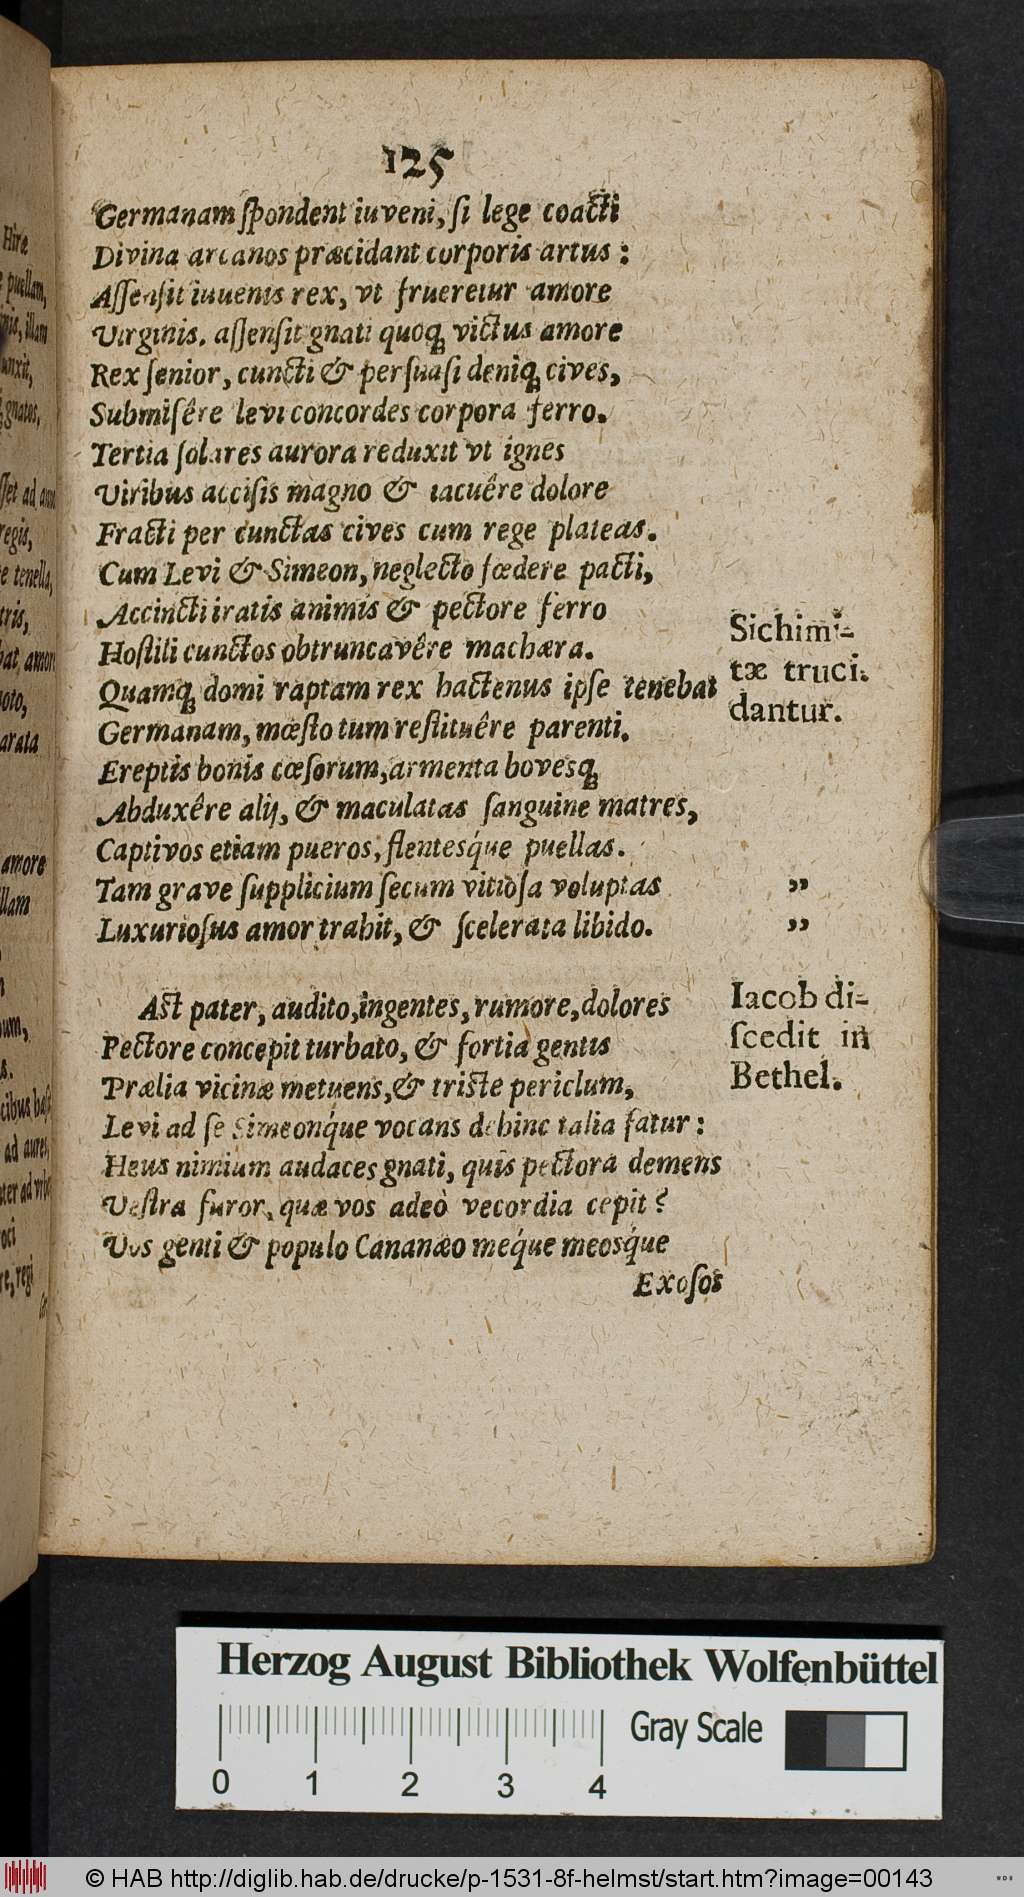 125
Germanam ſpondent iuveni, ſi lege coacti
Divina arcanos præcidant corporis artus:
Aſſenſit iuvenis rex, vt frueretur amore
Virginis. aſſenſit gnati quoqꝫ victus amore
Rex ſenior, cuncti & perſuaſi deniqꝫ cives,
Submiſêre levi concordes corpora ferro.
Tertia ſolares aurora reduxit vt ignes
Viribus acciſis magno & iacuêre dolore
Fracti per cunctas cives cum rege plateas.
Cum Levi & Simeon, neglecto fœdere pacti,
Accincti iratis animis & pectore ferro
Hoſtili cunctos obtruncavêre machæra.
Quamqꝫ domi raptam rex hactenus ipſe tenebat
Germanam, mœſto tum reſtituêre parenti.
Ereptis bonis cæſorum, armenta bovesqꝫ
Abduxêre alij, & maculatas ſanguine matres,
Captivos etiam pueros, flentesq́ue puellas.
Tam grave ſupplicium ſecum vitioſa voluptas
Luxurioſus amor trahit, & ſcelerata libido.
Sichimi-
tæ truci-
dantur.
„
„
Aſt pater, audito, ingentes, rumore, dolores
Pectore concepit turbato, & fortia gentis
Prælia vicinæ metuens, & triſte periclum,
Levi ad ſe Simeonq́ue vocans dehinc talia fatur:
Heus nimium audaces gnati, quis pectora demens
Veſtra furor, quæ vos adeò vecordia cepit?
Vos genti & populo Cananæo meq́ue meosq́ue
Exoſos
Iacob di-
ſcedit in
Bethel.
Hiræ
puellam,
illam
unxit,
gnatos,
regis,
tenella,
amore
arata
amore
llam
ad aures,
regi
Herzog August Bibliothek Wolfenbüttel
Gray Scale
0 1 2 3 4
© HAB http://diglib.hab.de/drucke/p-1531-8f-helmst/start.htm?image=00143